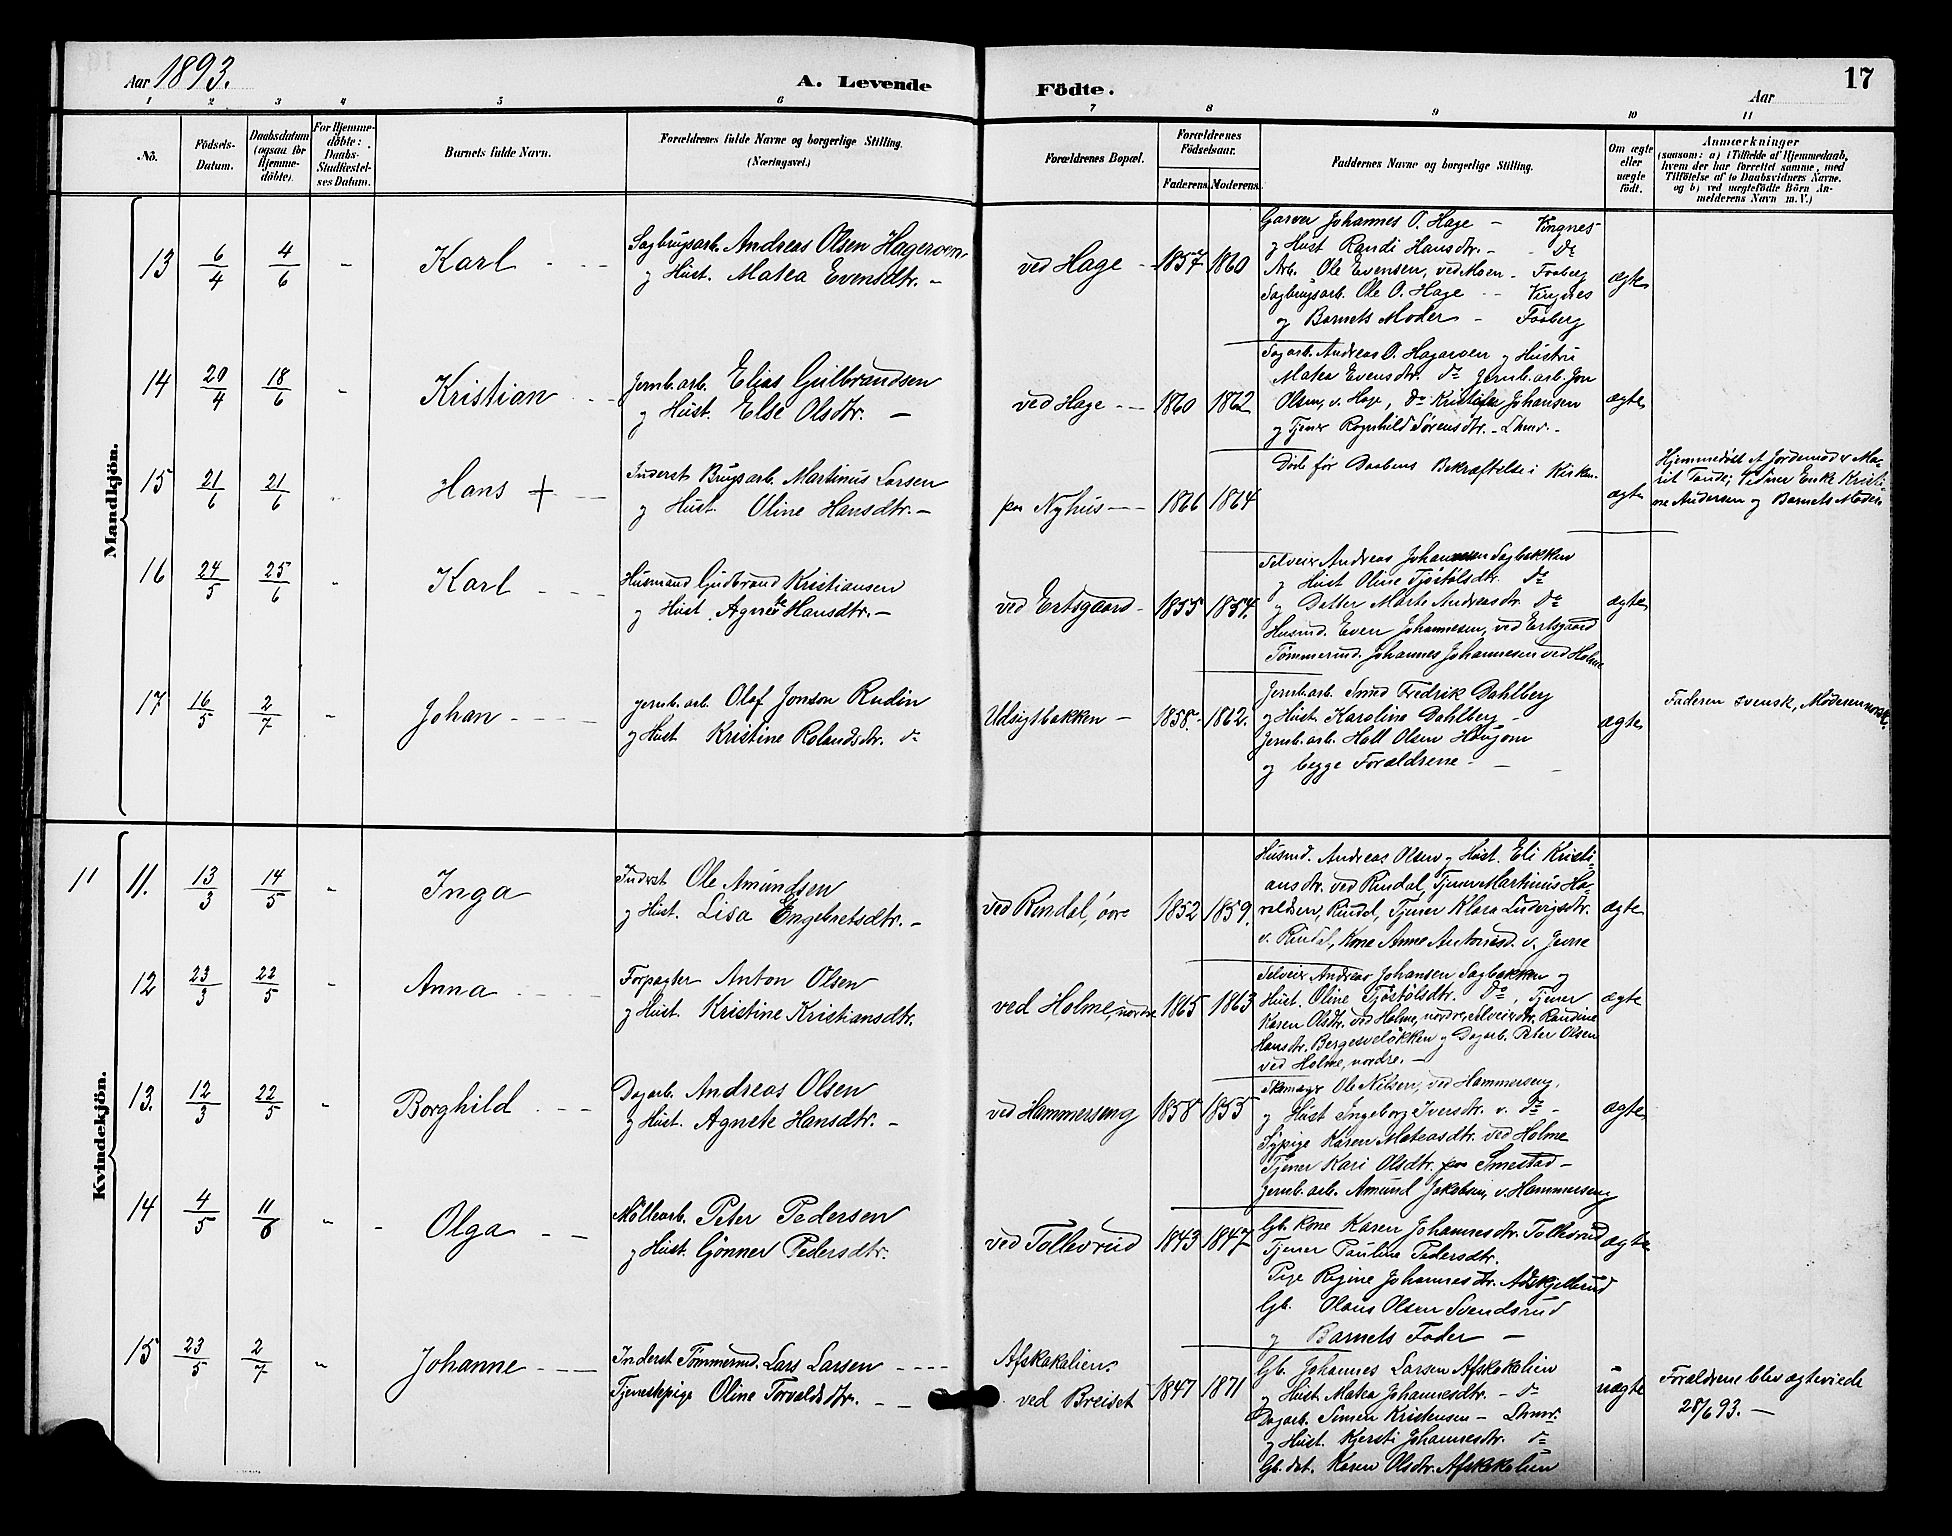 Aar 1893.
A. Levende
Födte.
Aar
17
1 2 3 4 5 6 7 8 9 10 11
No.
Födsels-
Datum.
Daabsdatum
(ogsaa for
Hjemme-
döbte).
For Hjemme-
döbte:
Daabs-
Stadfæstel-
ses Datum.
Barnets fulde Navn.
Forældrenes fulde Navne og borgerlige Stilling.
(Næringsvei.)
Forældrenes Bopæl.
Forældrenes
Födselsaar.
Faderens. Moderens.
Faddernes Navne og borgerlige Stilling.
Om ægte
eller
uægte
födt.
Anmærkninger
(saasom: a) i Tilfælde af Hjemmedaab,
hvem der har forrettet samme, med
Tilföielse af to Daabsvidners Navne.
og b) ved uægtefödte Börn An-
melderens Navn m. V.)
Mandkjön.
13 6/4 4/6 - Karl - - -
Sagbrugsarb. Andreas Olsen Hageroen
og Hust. Matea Evensdtr. -
ved Hage - 1857 1860
Garver Johannes O. Hage - Vingnes
og Hust Randi Hansdtr. - Do
Arb. Ole Evensen, ved Moen - Faaberg
Sagbrugsarb. Ole O. Hage - - Vingnes
og Barnets Moder - Faaberg
ægte
14 20/4 18/6 - Kristian - -
Jernb.arb. Elias Gulbrandsen
og Hust. Else Olsdtr. -
ved Hage - - 1860 1862
Sagarb. Andreas O. Hageroen og Hustru
Matea Evensdtr. do Jernb.arb. Jon
Olsen, v. Hage, do Kristian Johansen
og Tjener Ragnhild Sörensdtr. - Lhmr. -
ægte
15 21/6 21/6 Hans + - -
Inderst Brugsarb. Martinus Larsen
og Hust. Oline Hansdtr. -
paa Nyhus - - - 1866 1864
Döde för Daabens Bekræftelse i Kirken.
ægte
Hjemmedöbt af Jordemod. Ma-
rit Tande; Vidner Enke Kristi-
ne Andersen og Barnets Moder.
16 24/5 25/6 - Karl - - -
Husmand Gudbrand Kristiansen
og Hust. Agnete Hansdtr. -
ved Ertsgaard - 1855 1854.
Selveier Andreas Johannesen Sagbakken
og Hust Oline Tjöstölsdtr. Do
og Datter Marte Andreasdtr. Do
Husmd. Even Johannesen, ved Ertsgaard
Tömmermd. Johannes Johannesen ved Holme
ægte
17 16/5 2/7 - Johan - - - -
Jernb.arb. Olof Jonson Rudin
og Hust Kristine Rolandsdtr. do
Udsigtbakken - 1858. 1862.
Jernb.arb. Smed Fredrik Dahlberg
og Hust. Karoline Dahlberg -
Jernb.arb. Hall Olsen Hougom
og begge Forældrene - -
ægte
Faderen svensk, Moderen norsk.
Kvindekjön.
11 11. 13/3 14/5 - Inga
Inderst Ole Amundsen
og Hust. Lisa Engebretsdtr. -
ved Rindal, övre 1852 1859.
Husmd. Andreas Olsen og Hust. Eli Kristi-
ansdtr. ved Rindal, Tjener Martinus Ha-
raldsen, Rindal, Tjener Klara Ludvigsdtr.
v. Rindal, Kone Anne Antonsd. v. Jevne
ægte
12 23/3 22/5 - Anna - - - -
Forpagter Anton Olsen
og Hust. Kristine Kristiansdtr.
ved Holme, nordre 1865 1863
Selveier Andreas Johansen Sagbakken og
Hust. Oline Tjöstölsdtr. Do, Tjener
Karen Olsdtr. ved Holme, nordre, Selveierdtr. Randine
Hansdtr. Bergesvelökken og Dagarb. Peter Olsen
ved Holme, nordre. -
ægte
13. 12/3 22/5 - Borghild - - -
Dagarb. Andreas Olsen
og Hust. Agnete Hansdtr. -
ved Hammerseng 1858 1855
Skomager Ole Nilsen, ved Hammerseng,
og Hust Ingeborg Iversdtr. v. do -
Sypige Karen Mateasdtr. ved Holme
Tjener Kari Olsdtr. paa Smestad -
Jernb.arb. Amund Jakobsen, v. Hammerseng
ægte
14 4/5 11/6 - - Olga - -
Möllearb. Peter Pedersen
og Hust. Gönner Pedersdtr.
ved Tollevrud 1843 1847
Gb. kone Karen Johannesdtr. Tollevrud
Tjener Pauline Pedersdtr.
Pige Regine Johannesdtr. Adskjellerud
Gb. Olaus Olsen Svendsrud
og Barnets Fader -
ægte
15 23/5 2/7 - Johanne - - -
Inderst Tömmermd. Lars Larsen - - - -
Tjenestepige Oline Torvaldsdtr. - -
Afskakalien.
ved Breiset 1847 1871
Gb. Johannes Larsen Afskakalien
og Hust. Matea Johannesdtr. - do
Dagarb. Simen Kristensen - Lhmr.
og Hust. Kjersti Johannesdtr. do
Gb.dat. Karen Olsdtr. Afskakalien
uægte
Forældrene blev ægteviede
28/6 93. -